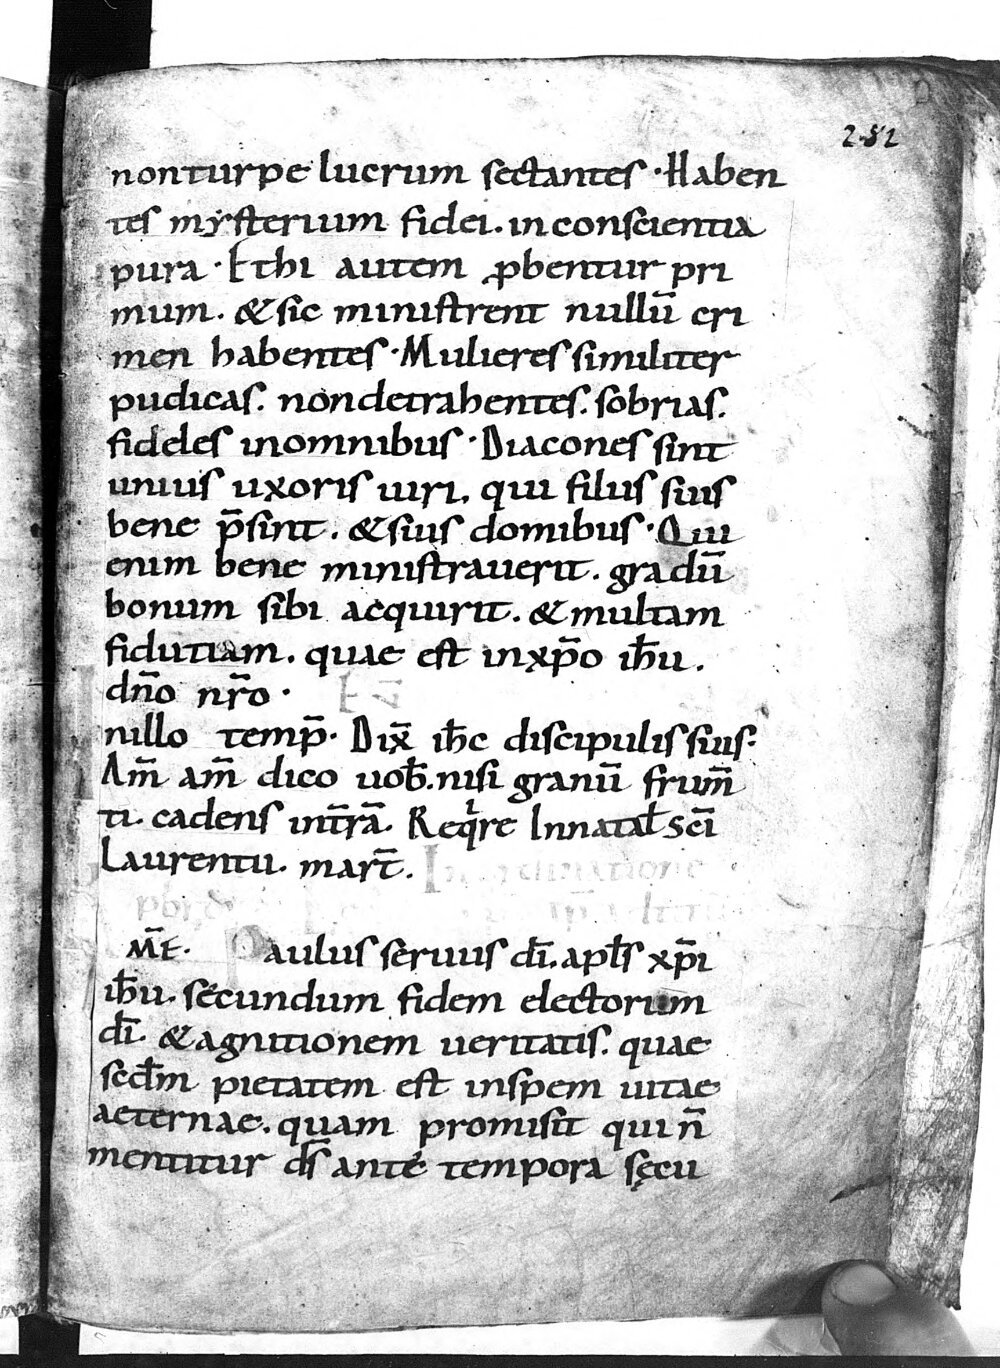 282
non turpe lucrum sectantes · Haben
tes mysterium fidei. in conscientia
pura · Et hi autem ꝓbentur pri
mum. & sic ministrent nullū cri
men habentes · Mulieres similiter
pudicas. non detrahentes. sobrias.
fideles in omnibus · Diacones sint
unius uxoris uiri. qui filiis suis
bene p̄sint. & suis domibus · Qui
enim bene ministrauerit. gradū
bonum sibi acquirit. & multam
fidutiam. quae est in xp̄o ih̄u.
dn̄o nr̄o · Eṽ
nillo temp̄. Dix̄ ih̄c discipulis suis:
Am̄ am̄ dico uob̄. nisi granū frum̄
ti. cadens in t̄rā. Reqͥre In natal̄ sc̄i
Laurentii. mart̄. In ordinatione
pbr
M̄E. Paulus seruus dī. apl̄s xp̄i
ih̄u. secundum fidem electorum
dī & agnitionem ueritatis. quae
secd̄m pietatem est in spem uitae
aeternae. quam promisit qui n̄
mentitur ds̄ ante tempora sęcu